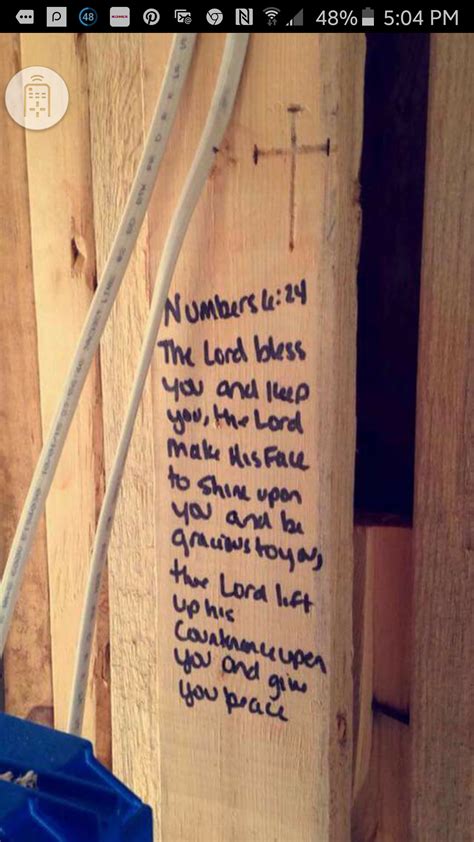 48
48% 5:04 PM
Numbers 6:24
The Lord bless
you and keep
you, the Lord
make His Face
to shine upon
you and be
gracious to you,
the Lord lift
up his
Countenance upon
you and give
you peace